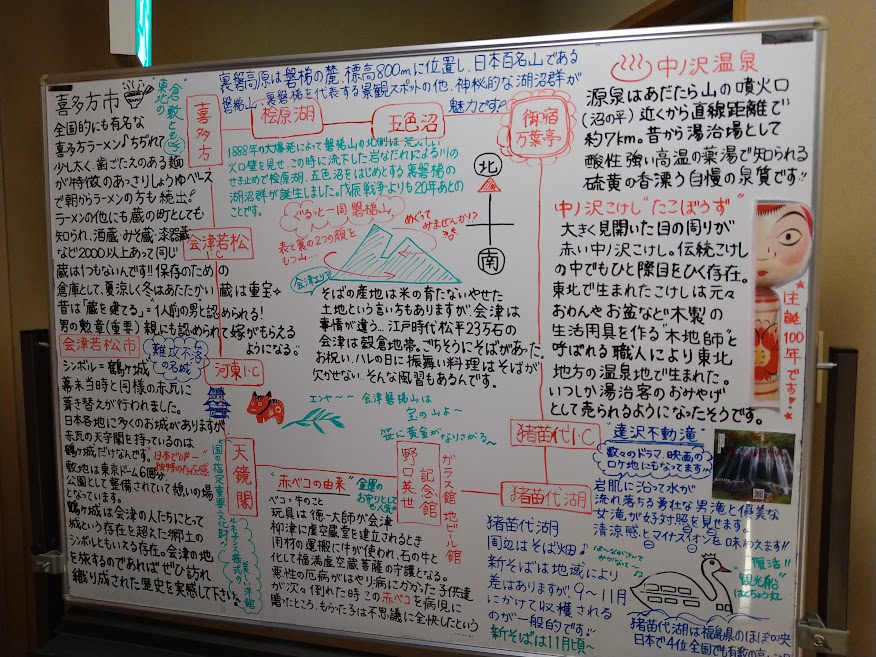 裏磐高原は磐梯の麓、標高800mに位置し、日本百名山である
磐梯山・裏磐梯を代表する景観スポットの他、神秘的な湖沼群が
魅力です♪
喜多方市
"倉敷とも
東北の
全国的にも有名な
喜多方ラーメン♪ちぢれて
少し太く、歯ごたえのある麺
が特徴のあっさりしょうゆベース
で朝からラーメンの方も続出!
ラーメンの他にも蔵の町としても
知られ、酒蔵・みそ蔵・漆器蔵
など2000以上あって同じ
蔵は1つもないんです!!保存のための
倉庫として、夏涼しく冬はあたたかい蔵は重宝
昔は「蔵を建てる」=1人前の男と認められる!
男の勲章(重要)親にも認められて嫁がもらえる
ようになる。"
喜多方
桧原湖
五色沼
御宿
万葉亭
1888年の大爆発によって磐梯山の北側は荒々しい
火口壁を見せ、この時に流下した岩なだれによる川の
せき止めで桧原湖、五色沼をはじめとする裏磐梯の
湖沼群が誕生しました。戊辰戦争よりも20年あとの
ことです。
ぐるっと一周 磐梯山
めぐって
みませんか!?
表と裏の2つの顔を
もつ山…
会津エリア
北
南
会津若松
そばの産地は米の育たないやせた
土地という言い方もありますが、会津は
事情が違う…江戸時代松平23万石の
会津は穀倉地帯。ごちそうにそばがあった。
お祝い、ハレの日に振舞い料理はそばが
欠かせない…そんな風習もあるんです。
中ノ沢温泉
源泉はあだたら山の噴火口
(沼の平)近くから直線距離で
約7km。昔から湯治場として
酸性強い高温の薬湯で知られる
硫黄の香漂う自慢の泉質です!!
中ノ沢こけし"たこぼうず"
大きく見開いた目の周りが
赤い中ノ沢こけし。伝統こけし
の中でもひと際目をひく存在。
東北で生まれたこけしは元々
おわんやお盆など木製の
生活用具を作る"木地師"と
呼ばれる職人により東北
地方の温泉地で生まれた。
いつしか湯治客のおみやげ
として売られるようになったそうです。
生誕100年です!
会津若松市
難攻不落
の名城
シンボル=鶴ヶ城
幕末当時と同様の赤瓦に
葺き替えが行われました。
日本各地に多くのお城がありますが
赤瓦の天守閣を持っているのは
鶴ヶ城だけなんです。
日本で唯一
敷地は東京ドーム6個分。
公園として整備されていて憩いの場
となっています。
鶴ヶ城は会津の人たちにとって
城という存在を超えた郷土の
シンボルともいえる存在。会津の地
を旅するのであればぜひ訪れ
織り成された歴史を実感して下さい。
河東I・C
天鏡閣
国の指定重要文化財
エンヤ〜〜会津磐梯山は
宝の山よ〜
笹に黄金がなりさがる〜
"赤べコの由来"
金運の
お守りとして
も人気
べコ・牛のこと
玩具は徳一大師が会津
柳津に虚空蔵堂を建立されるとき
用材の運搬に牛が使われ、石の牛と
して福満虚空蔵菩薩の守護となる。
悪性の厄病がはやり病にかかった子供達
が次々倒れた時この赤べコを病児に
贈ったところ、もらった子は不思議に全快したという
野口英世
記念館
ガラス館・地ビール館
猪苗代I・C
猪苗代湖
猪苗代湖
周辺はそば畑♪
新そばは地域により
差はありますが、9〜11月
にかけて収穫される
のが一般的です!!
新そばは11月頃〜
"達沢不動滝"
数々のドラマ、映画の
ロケ地にもなってます
岩肌に沿って水が
流れ落ちる勇壮な男滝と優美な
女滝が好対照を見せます。
清涼感とマイナスイオンを味わえます!!
復活!!
"観光船"
はくちょう丸
猪苗代湖は福島県のほぼ中央
日本で4位、全国でも有数の